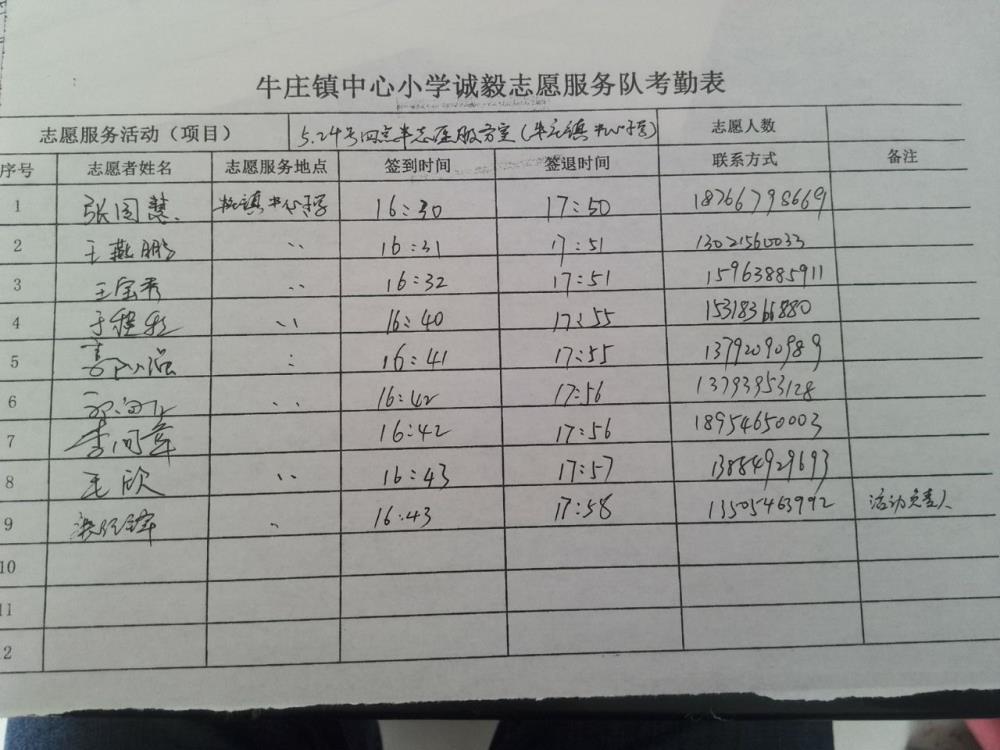 牛庄镇中心小学诚毅志愿服务队考勤表
志愿服务活动（项目） 5.24号四点半志愿服务室（牛庄镇中心小学） 志愿人数
序号 志愿者姓名 志愿服务地点 签到时间 签退时间 联系方式 备注
1 张国慧 牛庄镇中心小学 16:30 17:50 18766798669
2 王燕鹏 、、 16:31 17:51 13021560033
3 王宝秀 、、 16:32 17:51 15963885911
4 、、 16:40 17:55 15318366880
5 : 16:41 17:55 13792090989
6 、、 16:42 17:56 13793953128
7 16:42 17:56 18954650003
8 王欣 、、 16:43 17:57 13884929693
9 、 16:43 17:58 13505463992 活动负责人
10
11
12